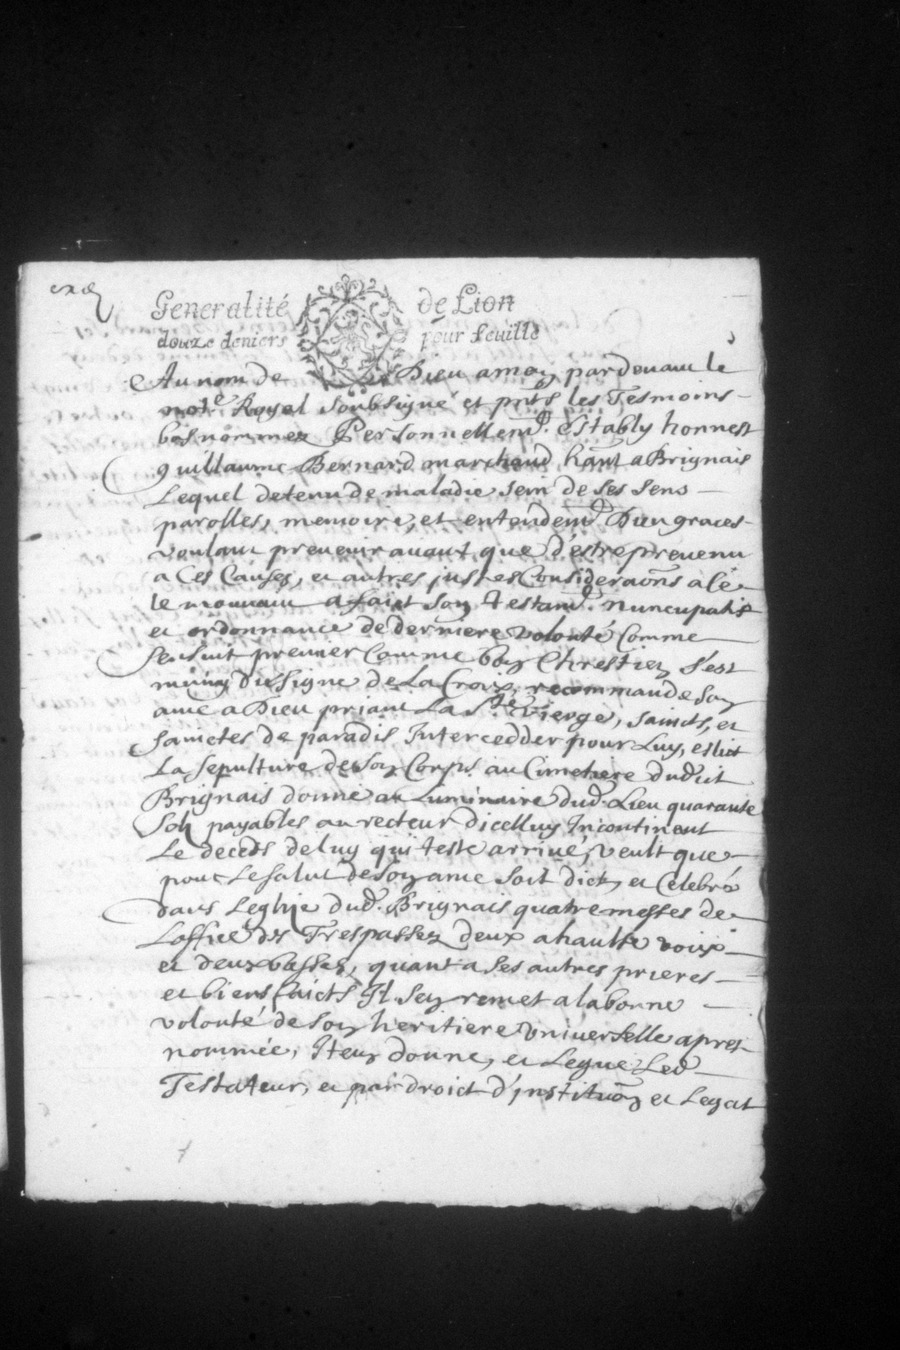 exᵉ
Generalité de Lion
douze deniers pour feuille
Au nom de Dieu amen pardevant le
notᵉ Royal soubsigné et pnts les Tesmoins
bas nommez Personnellemᵗ. estably honnest
guillaume Bernard marchand hant a Brignais
Lequel detenu de maladie sein de ses sens
parolles, memoire, et entendemᵗ Dieu graces
voulant prevenir avant que d'estre prevenu
a Ces Causes, et autres justes Consideraons a cé
le mouvant a faict son testamᵗ. nuncupatif
et ordonnance de derniere volonté Comme
sensuit premier Comme bon Chrestien s'est
muny du Signe de La Croix, recommande son
ame a Dieu priant La Sᵗᵉ Vierge, saincts, et
sainctes de paradis Intercedder pour Luy, eslit
La sepulture de son Corps au Cimetiere dudict
Brignais donne au Luminaire dud. Lieu quarante
solz payables au recteur dicelluy Incontinent
Le deceds de luy qui teste arrivé, veult que
pour Le salut de son ame soit dict, et Celebré
dans Leglize dud. Brignais quatre messes de
Loffice des Trespassez deux a haulte voix
et deux basses, quant a ses autres prieres
et biens faicts Il sen remet a la bonne
volonté de son heritiere universelle apres
nommée, Item donne, et Legue Led
Testateur, et par droict d'institûon et Legat